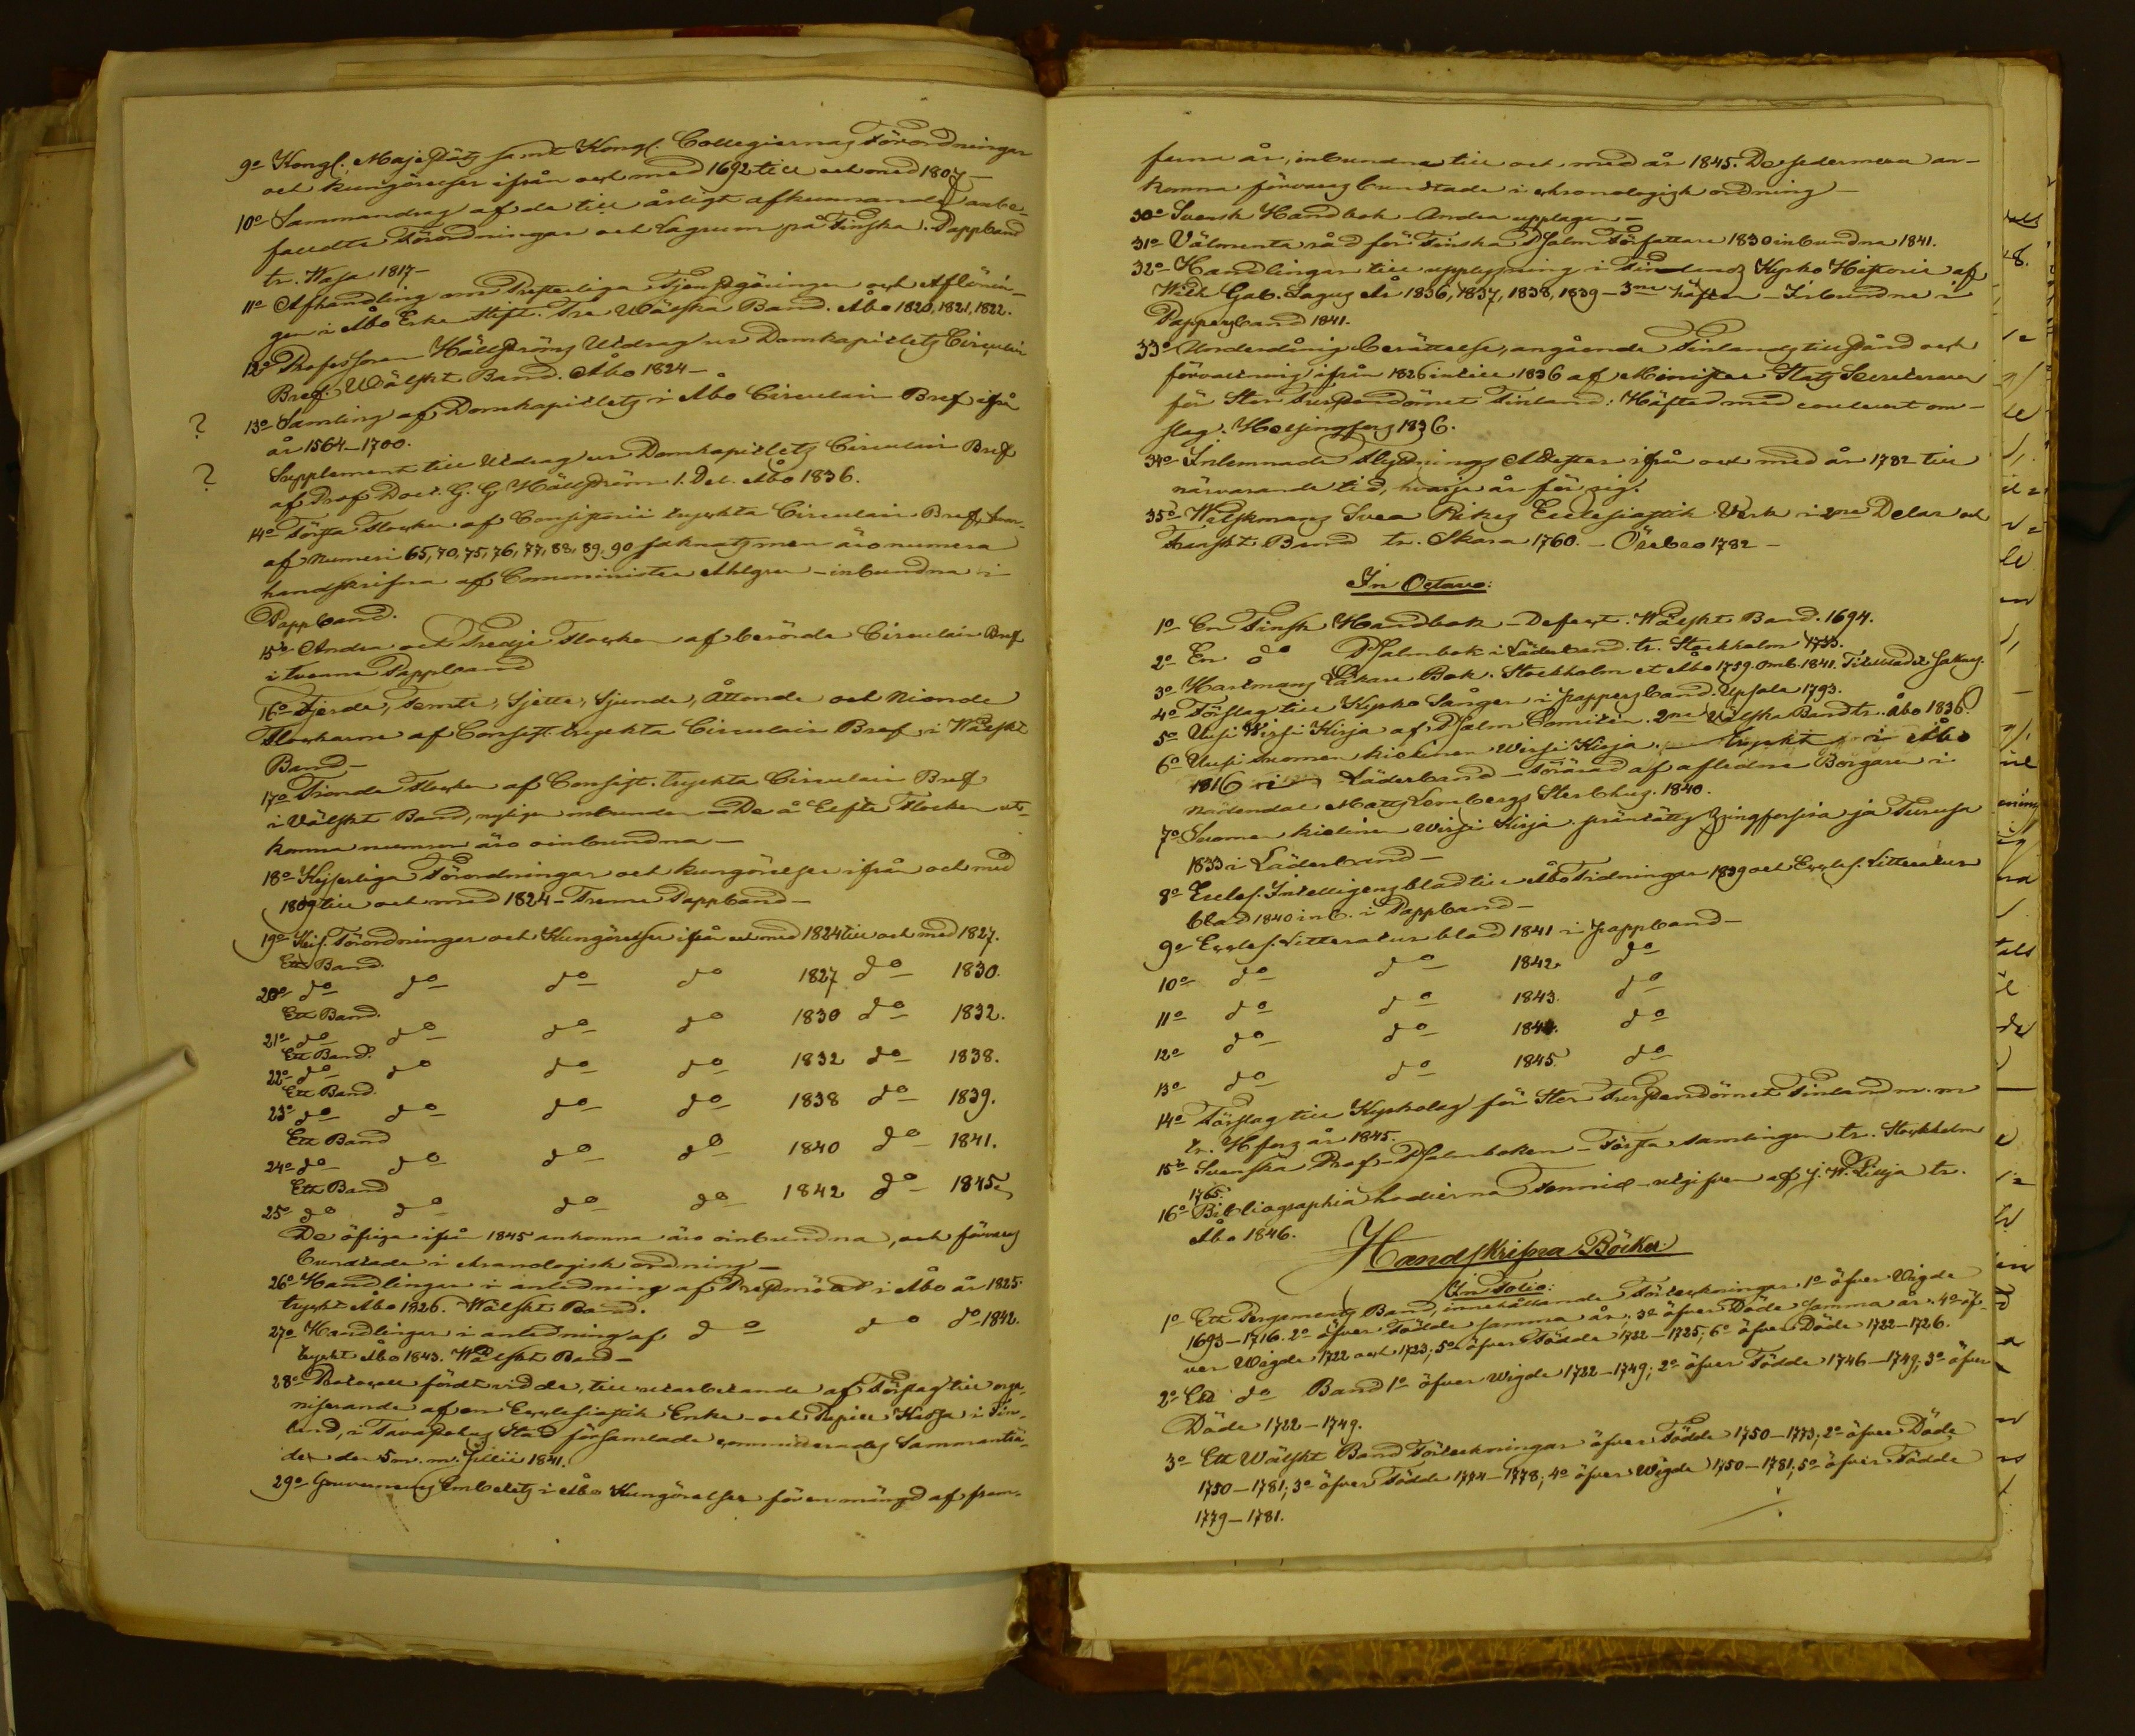 9o Kongl. Majestäts samt Kongl. Collegiernas Förordningar
och kungörelser ifrån och med 1692 till och med 1807 —
10o Sammandrag af de till årligt afkunnande anbe-
fallda Förordningar och Lagrum på Finska. Pappband
tr. Wasa 1817 —
11o Afhandling om Presterliga Tjenstgöringen och Aflönin-
gen i Åbo Erke Stift. Tre Wälska Band. Åbo 1820, 1821, 1822.
12o Professoren Hällströms Utdrag ur Domkapitlets Circulär
Bref. Wälskt Band. Åbo 1824 —
? 13o Samling af Domkapitlets i Åbo Circulair Bref ifrån
år 1564 — 1700.
? Supplement till Utdrag ur Domkapitlets Circulair Bref
af Prof Doct. G. G Hällström 1. Del. Åbo 1836.
14o Första Flocken af Consistorii tryckta Circulair Bref, hvar-
af Numeri 65, 70, 75, 76, 77, 88, 89, 90 saknats men äro numera
handskrifna af Comminister Ahlgren — inbundna i
Pappband.
15o Andra och Tredje Flocken af berörda Circulair Bref
i tvenne Pappband
16o Fjerde, Femte, Sjette, Sjunde, Åttonde och Nionde
Flockarne af Consist. tryckta Circulair Bref, i Wälskt
Band —
17o Tionde Flocken af Consist. tryckta Circulair Bref
i Wälskt Band, nyligen inbunden — De å Elfte Flocken ut-
komna numror äro oinbundna —
18o Kejserliga Förordningar och kungörelser ifrån och med
1809 till och med 1824 — Trenne Pappband —
19o Keis. Förordningar och Kungörelser ifrån och med 1824 till och med 1827.
Ett Band.
20o do do do do 1827 do 1830.
Ett Band.
21o do do do do 1830 do 1832.
Ett Band.
22o do do do do 1832 do 1838.
Ett Band.
23o do do do do 1838 do 1839.
Ett Band
24o do do do do 1840 do 1841.
Ett Band
25o do do do do 1842 do 1845.
De öfriga ifrån 1845 ankomna äro oinbundna, och förvaras
buntade i chronologisk ordning —
26o Handlingar i anledning af Prestmötet i Åbo år 1825
tryckt Åbo 1826. Wälskt Band.
27o Handlingar i anledning af do do do 1842.
tryckt Åbo 1843. Wälskt Band —
28o Protocoll fördt vid de, till utarbetande af Förslag till orga-
niserande af en Ecclesiastik Enke- och Pupill Kassa i Fin-
land, i Tavastehus Stad församlade committerades Sammanträ-
de den 5 m. Julii 1841.
29o Gouvernements Embetets i Åbo Kungörelser för en mängd af fram-
farna år, inbundna till och med år 1845. De sedermera an-
komna förvaras buntade i chronologisk ordning —
30o Svensk Handbok Andra upplagan —
31o Välmenta råd för Finska Psalm Författare 1830 inbundna 1841.
32o Handlingar till upplysning i Finlands Kyrko Historie af
Wilh Gab. Lagus År 1836, 1837, 1838, 1839 — 3ne häften — Inbundna i
Pappersband 1841.
33o Underdånig berättelse, angående Finlands tillstånd och
förvaltning ifrån 1826 intill 1836 af Minister Stats Secreteraren
för Stor Furstendömet Finland: Häftad med couleurt om-
slag. Helsingfors 1836.
34o Inlemnade Flyttnings Attester ifrån och med år 1782 till
närvarande tid, hvarje år för sig.
35o Wilskmans Svea Rikes Ecclesiastik Verk i 2ne Delar och
Franskt Band tr. Skara 1760. — Örebro 1782 —
In Octavo:
1o En Finsk Handbok — Defect. Wälskt Band. 1694.
2o En do Psalmbok i Läderband. tr. Stockholm 1735.
3o Hartmans Läkare Bok. Stockholm et Åbo 1759. omb. 1841. Titelbladet saknas.
4o Förslag till Kyrko Sånger i pappersband. Upsala 1793.
5o Uusi Wirsi Kirja af Psalm Comitén. 2ne Välska Band tr. Åbo 1836.
6o Uusi Suomen kielinen Wirsi Kirja. tryckt i Åbo
1816 i Läderband — Förärad af afledne Borgaren i
Nådendal Matts Lembergs Sterbhus. 1840.
7o Suomen kielinen Wirsi Kirja, präntätty Kringforsira ja Turusa
1833 i Läderband —
8o Eccles. Intelligens blad till Åbo Tidningar 1839 och Eccles. Litteratur
blad 1840 inb. i Pappband —
9o Eccles. Litteratur blad 1841 i pappband —
10o do do 1842 do
11o do do 1843. do
12o do do 1844. do
13o do do 1845. do
14o Förslag till Kyrkolag för Stor Furstendömet Finland m. m
tr. H:fors år 1845.
15o Svenska Prof-Psalmboken — Första samlingen tr. Stockholm
1765.
16o Bibliographia hodierna Fennica — utgifven af J. W. Lillja tr.
Åbo 1846.
Handskrifna Böcker.
In Folio:
1o Ett Pergaments Band, innehållande Förteckningar 1o öfver Wigde
1693 — 1716. 2o öfver Födde samma år; 3o öfver Döde samma år. 4o öf-
ver Wigde 1722 och 1723; 5o öfver Födde 1722 — 1725; 6o öfver Döde 1722 — 1726.
2o Ett do Band 1o öfver Wigde 1722 — 1749; 2o öfver Födde 1746 — 1749; 3o öfver
Döde 1722 — 1749.
3o Ett Wälskt Band Förteckningar öfver Födde 1750 — 1773; 2o öfver Döde
1750 — 1781; 3o öfver Födde 1774 — 1778; 4o öfver Wigde 1750 — 1781; 5o öfver Födde
1779 — 1781.